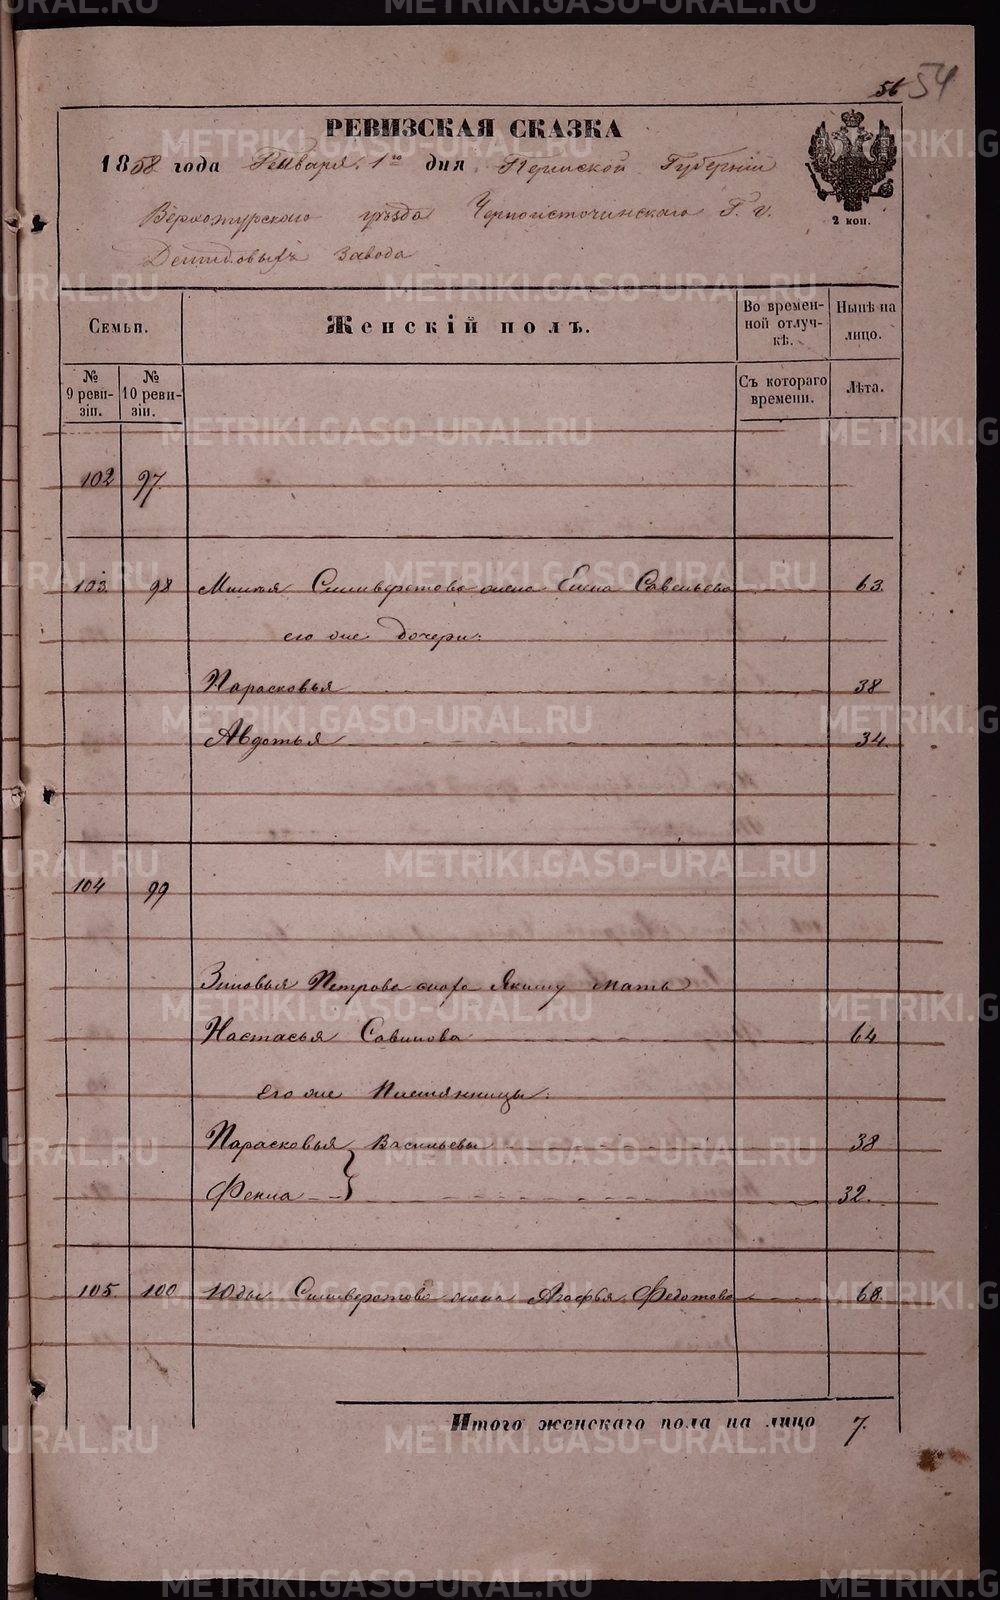 56 54
РЕВИЗСКАЯ СКАЗКА
1858 года Генваря 1го дня Пермской Губерніи
Верхотурскаго уѣзда Черноисточинскаго Г. г.
Демидовыхъ завода
2 коп.
Семьи.
Женскій полъ.
Во времен-
ной отлуч-
кѣ.
Нынѣ на
лицо.
№
9 реви-
зіи.
№
10 реви-
зіи.
Съ котораго
времени.
Лѣта.
102 97.
103. 98 Силиверстова жена Елена Савельева 63.
его же дочери:
Парасковья 38
Авдотья 34.
104 99
Зиновья Петрова Якиму мать
Настасья Савинова 64
Его же племянницы:
Парасковья Васильевы 38
Фекла 32.
105. 100 Юды Силиверстова жена Агафья Федотова 68.
Итого женскаго пола на лицо 7.
METRIKI.GASO-URAL.RU